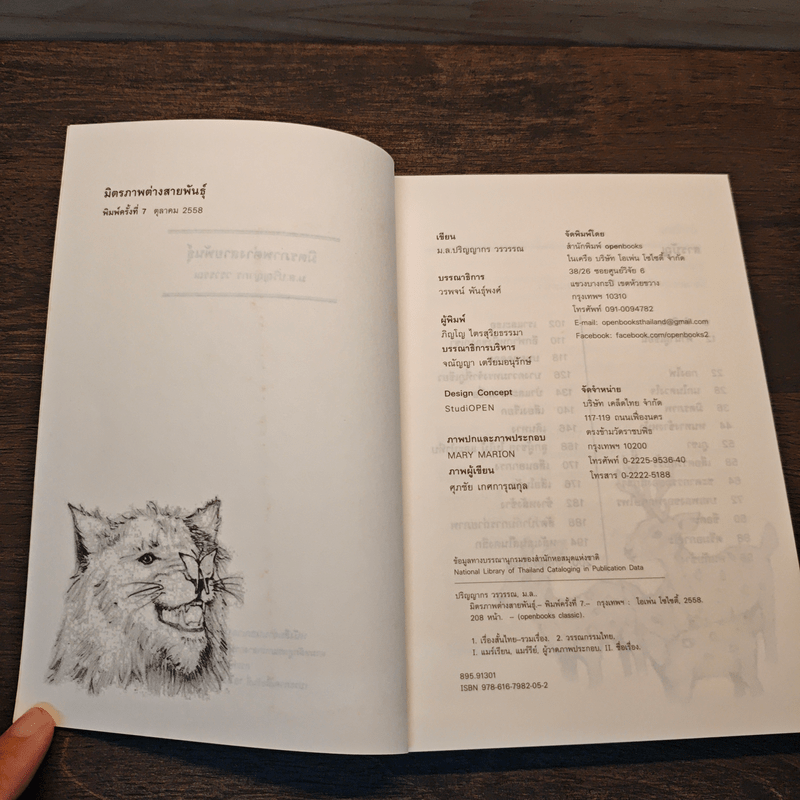 มิตรภาพต่างสายพันธุ์
พิมพ์ครั้งที่ 7 ตุลาคม 2558
เขียน
ม.ล.ปริญญากร วรวรรณ
บรรณาธิการ
วรพจน์ พันธุ์พงศ์
ผู้พิมพ์
ภิญโญ ไตรสุริยธรรมา
บรรณาธิการบริหาร
จณัญญา เตรียมอนุรักษ์
Design Concept
StudiOPEN
ภาพปกและภาพประกอบ
MARY MARION
ภาพผู้เขียน
ศุภชัย เกศการุณกุล
จัดพิมพ์โดย
สำนักพิมพ์ openbooks
ในเครือ บริษัท โอเพ่น โซไซตี้ จำกัด
38/26 ซอยศูนย์วิจัย 6
แขวงบางกะปิ เขตห้วยขวาง
กรุงเทพฯ 10310
โทรศัพท์ 091-0094782
E-mail: openbooksthailand@gmail.com
Facebook: facebook.com/openbooks2
จัดจำหน่าย
บริษัท เคล็ดไทย จำกัด
117-119 ถนนเฟื่องนคร
ตรงข้ามวัดราชบพิธ
กรุงเทพฯ 10200
โทรศัพท์ 0-2225-9536-40
โทรสาร 0-2222-5188
ข้อมูลทางบรรณานุกรมของสำนักหอสมุดแห่งชาติ
National Library of Thailand Cataloging in Publication Data
ปริญญากร วรวรรณ, ม.ล.
มิตรภาพต่างสายพันธุ์.– พิมพ์ครั้งที่ 7.– กรุงเทพฯ : โอเพ่น โซไซตี้, 2558.
208 หน้า. – (openbooks classic).
1. เรื่องสั้นไทย–รวมเรื่อง. 2. วรรณกรรมไทย,
I. แมร์เรียน, แมร์รีย์, ผู้วาดภาพประกอบ, II. ชื่อเรื่อง.
895.91301
ISBN 978-616-7982-05-2